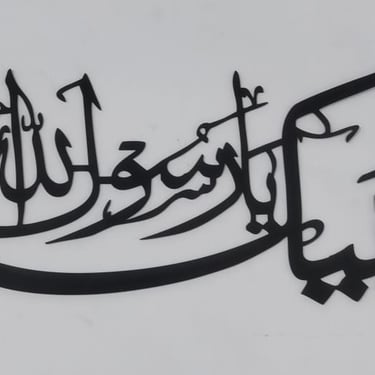 لبيك يا رسول الله